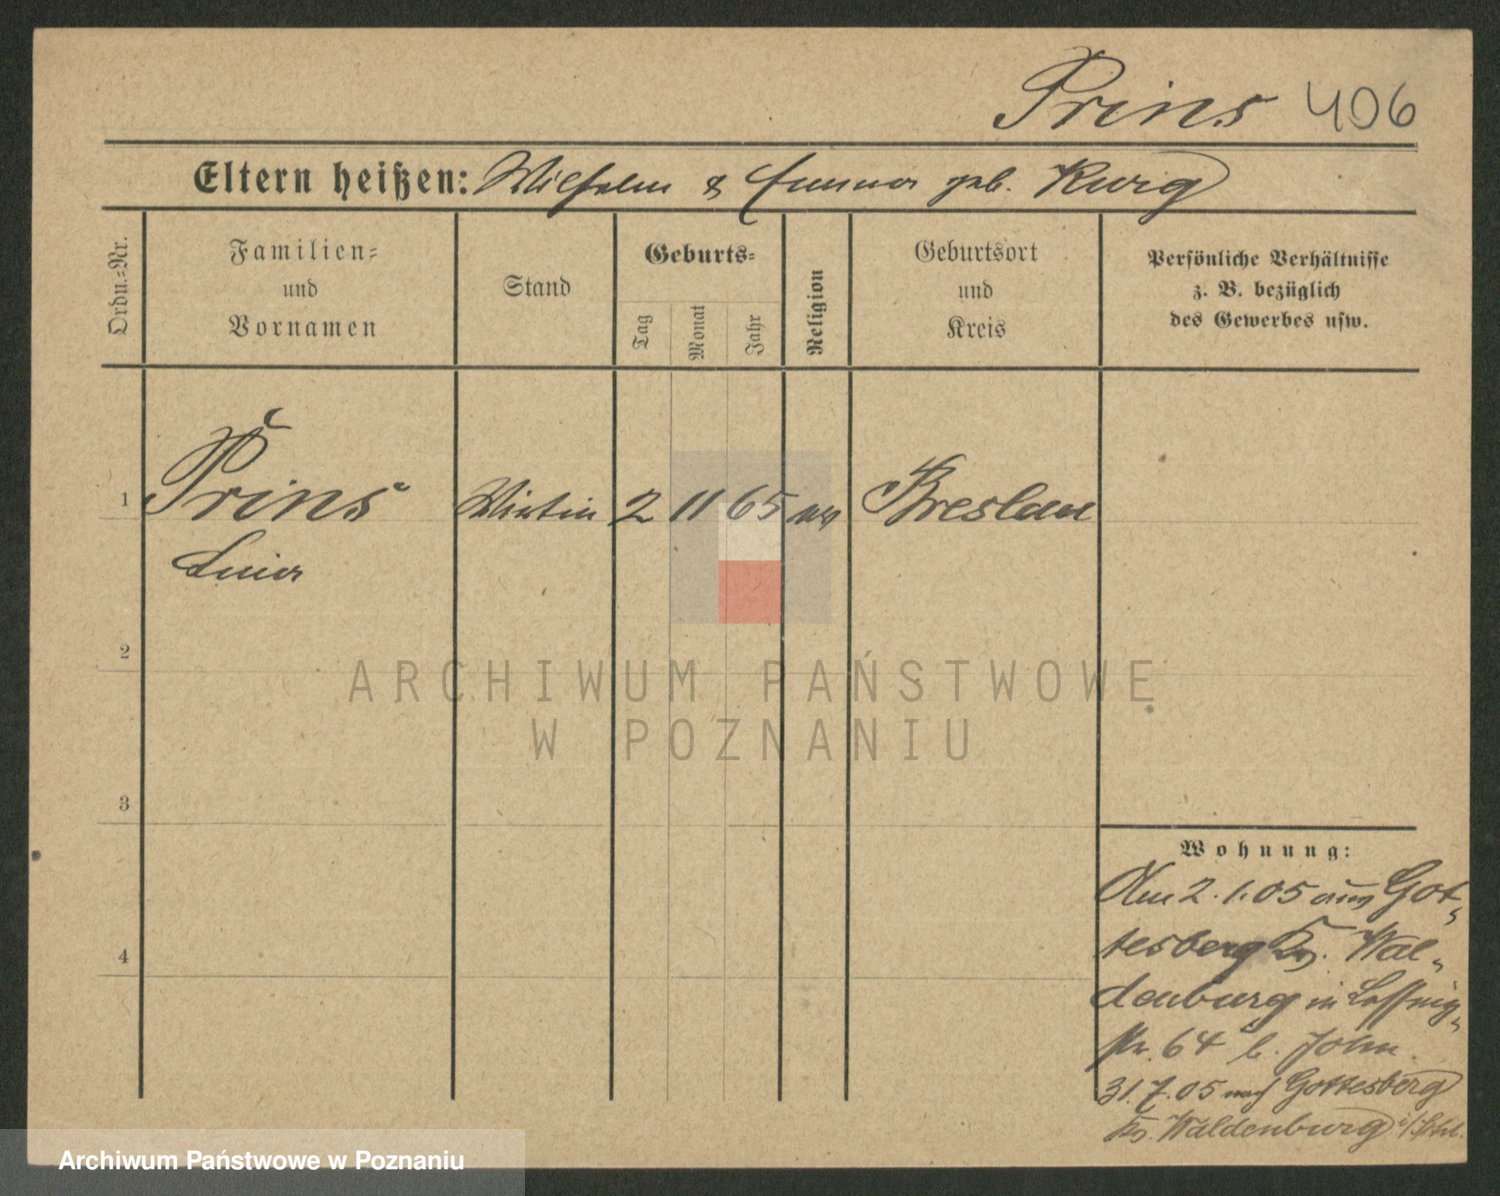 Prins 406
Eltern heißen: Wilhelm & Emma geb. Kurzg
Ordn.-Nr.
Familien-
und
Vornamen
Stand
Geburts-
Tag
Monat
Jahr
Religion
Geburtsort
und
Kreis
Persönliche Verhältnisse
z. B. bezüglich
des Gewerbes usw.
1 Prins Wirtin 2 11 65 ev Breslau
2
3
4
Wohnung:
Am 2.1.05 aus Got-
tesberg Kr. Wal-
denburg in
64 b. John
31.7.05 nach Gottesberg
Kr. Waldenburg i/Schl.
ARCHIWUM PAŃSTWOWE
W POZNANIU
Archiwum Państwowe w Poznaniu